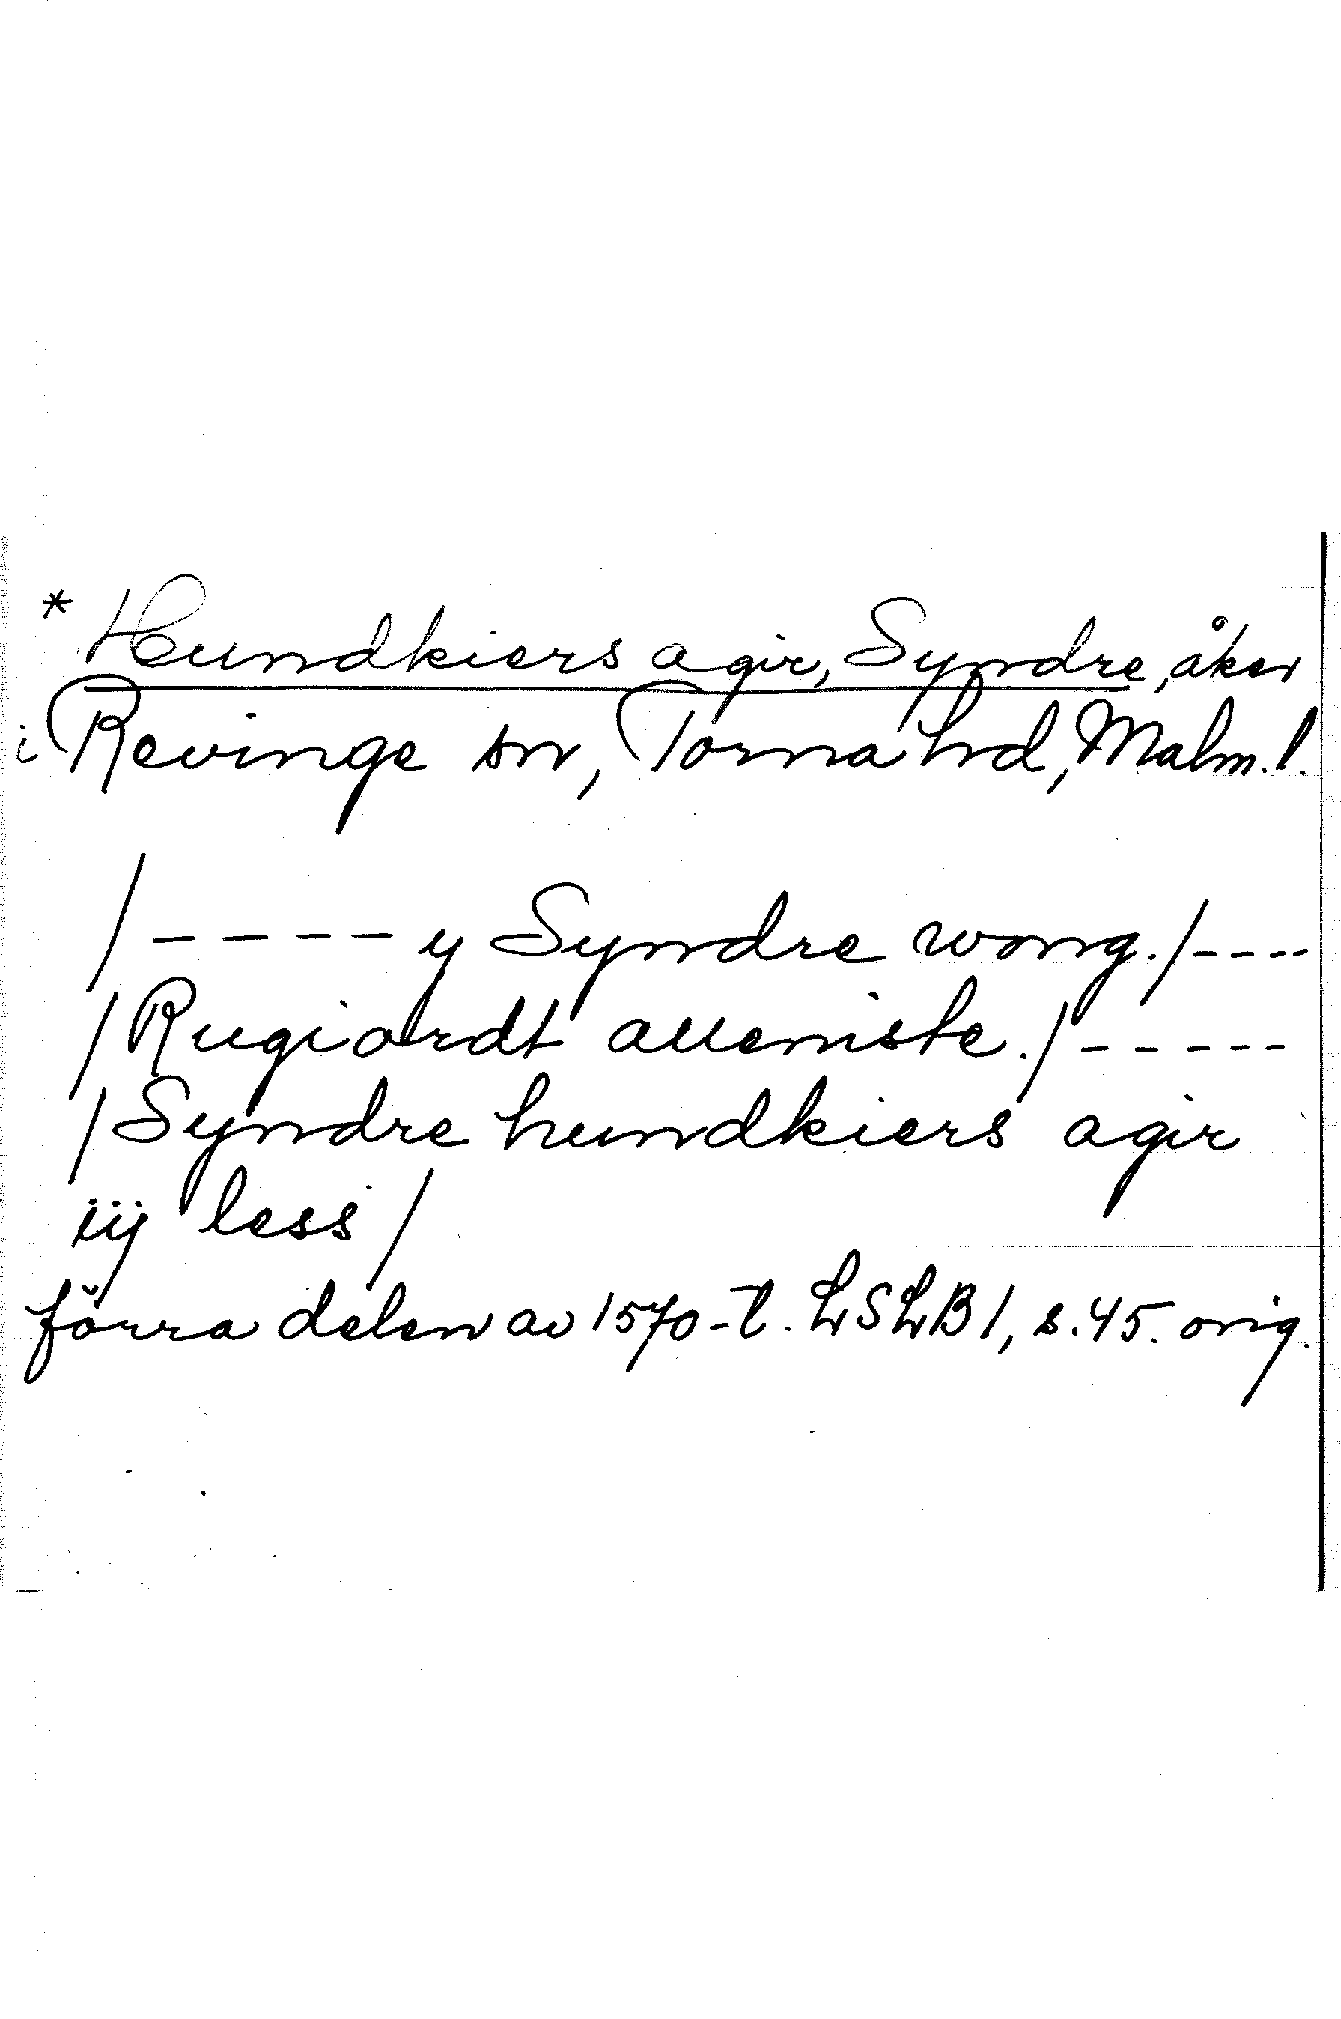 * Hundkiers agir, Syndre, åker
i Revinge sn, Torna hd, Malm. l.
/ - - - - y Syndre wong. / - - - -
/ Rugiardt alleniste. / - - - - -
/ Syndre hundkiers agir
iij less /
förra delen av 1570-t. LSLB 1, s. 45. orig.